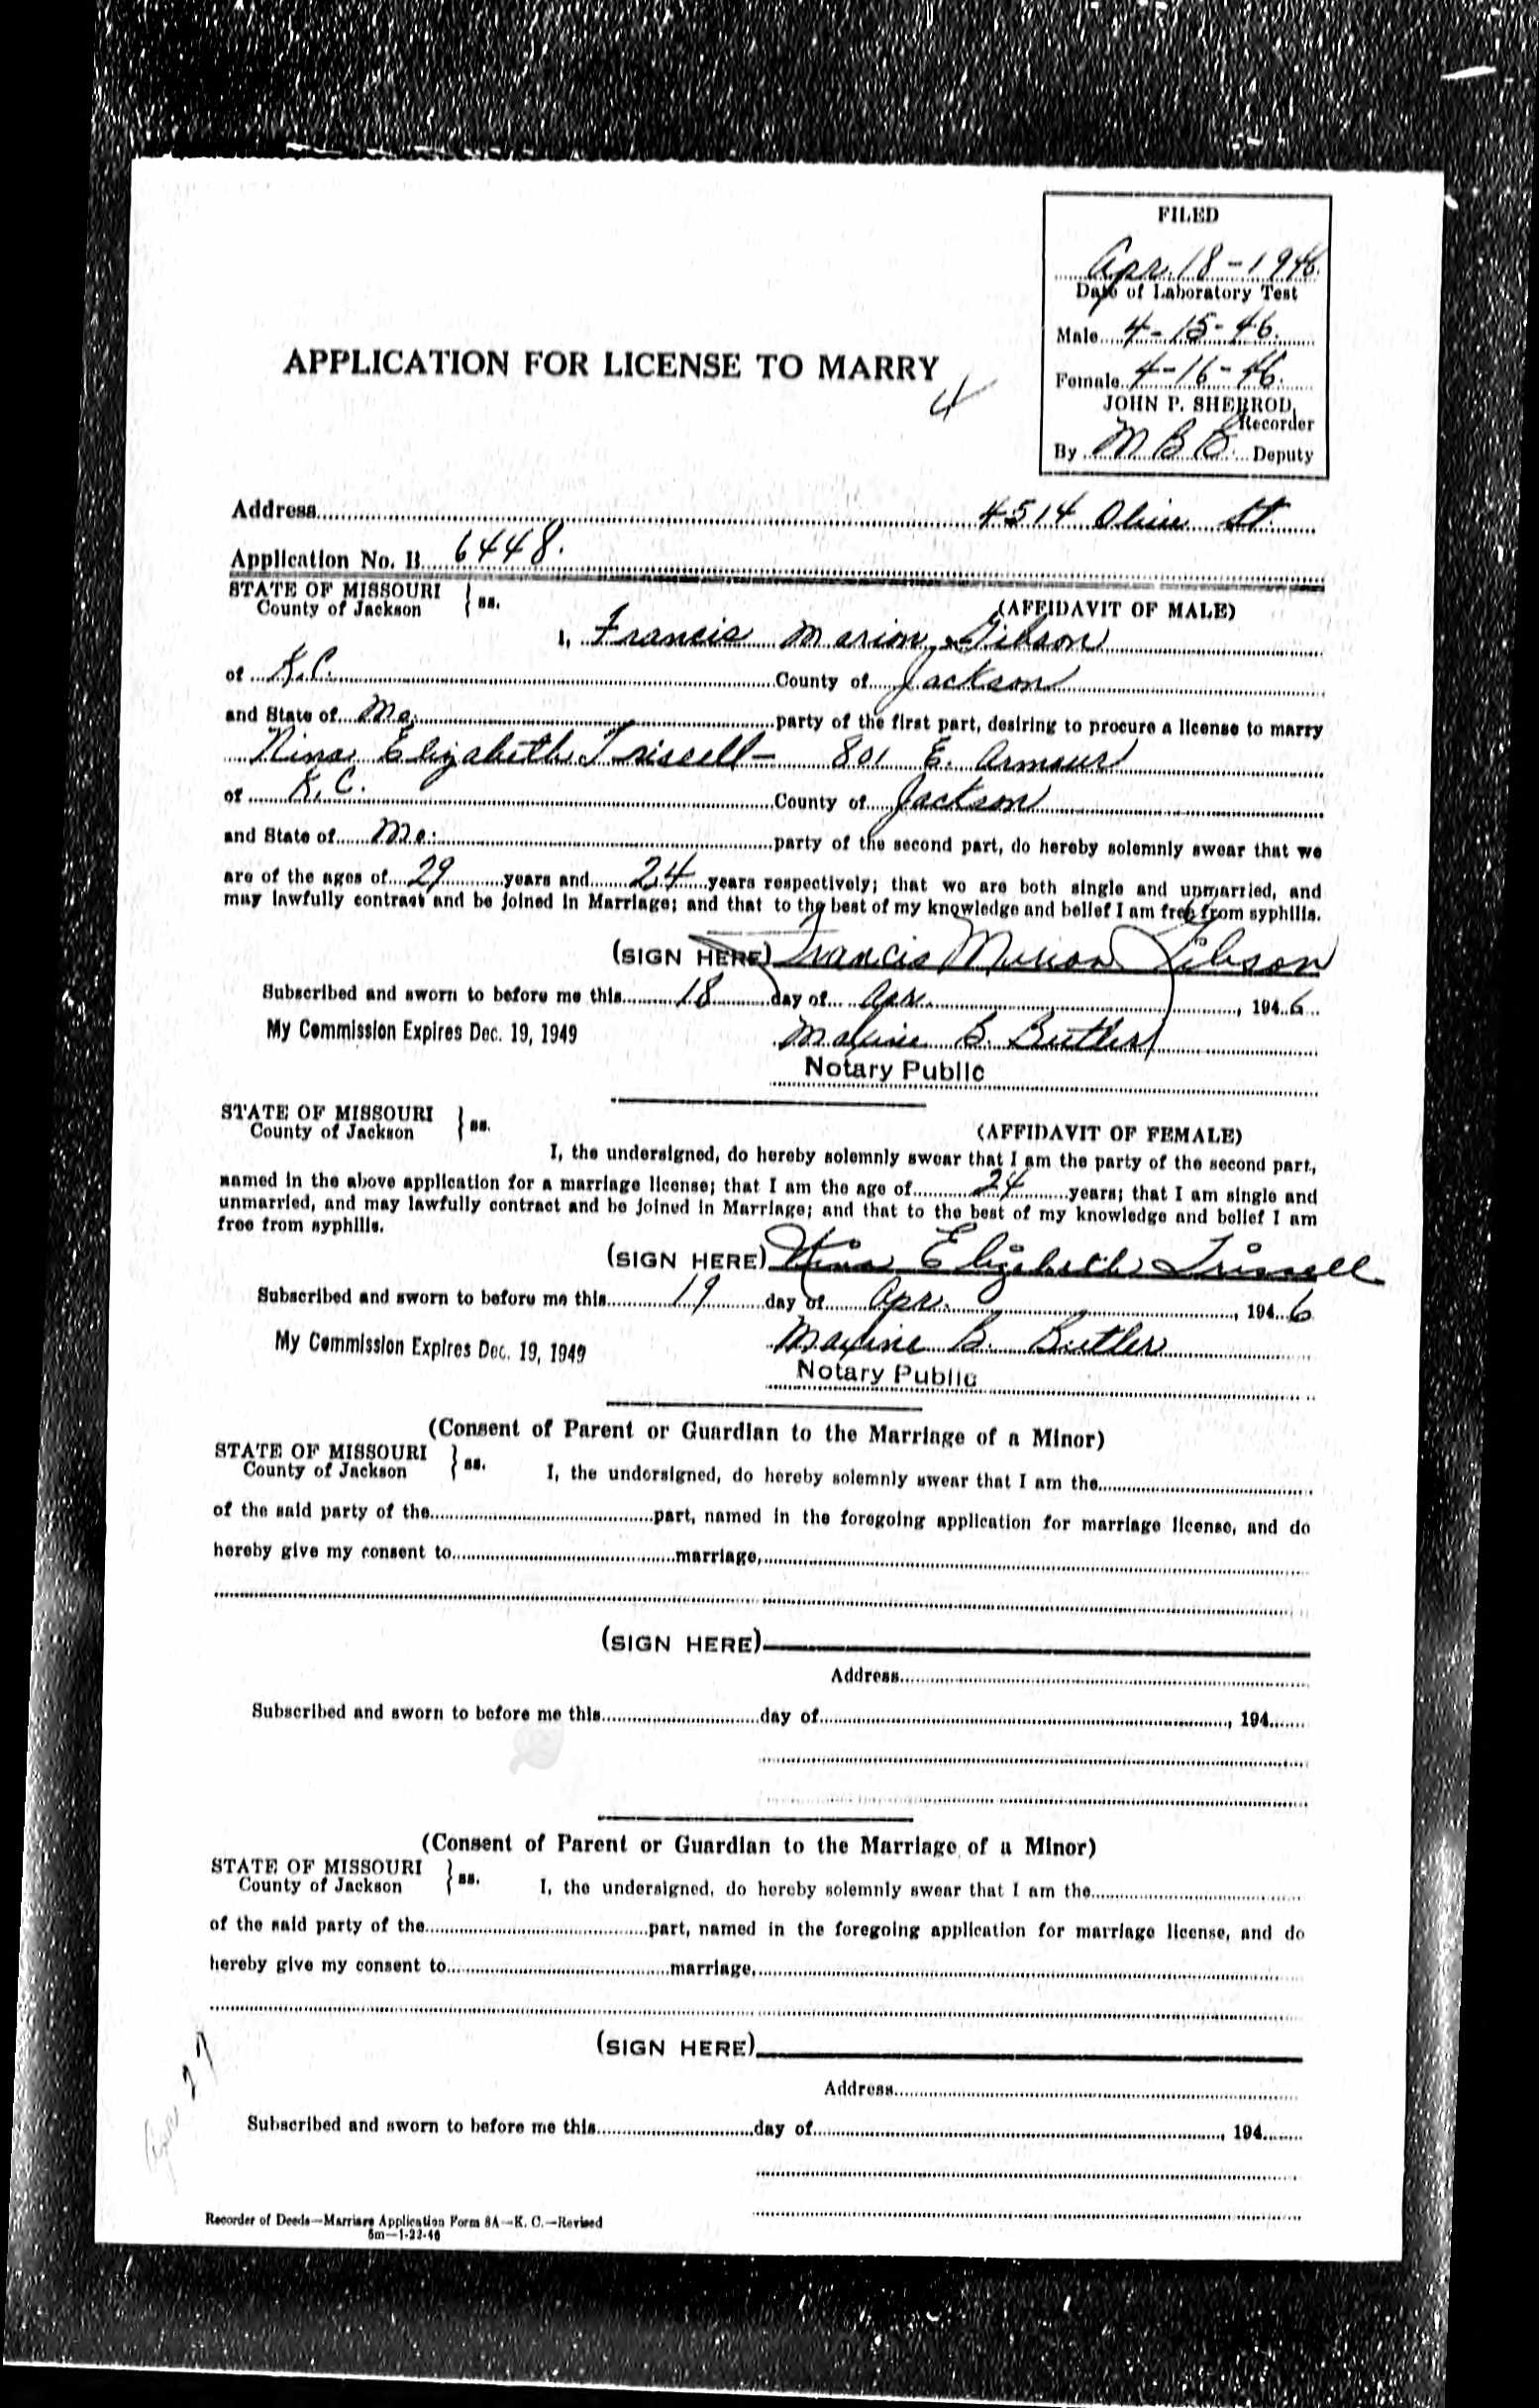 FILED
Apr. 18-1946.
Date of Laboratory Test
Male....4-15-46.
Female..4-16-46.
APPLICATION FOR LICENSE TO MARRY
JOHN P. SHERROD,
Recorder
By M B B. Deputy
Address 4514 Olive St.
Application No. B 6448.
STATE OF MISSOURI } ss.
County of Jackson
(AFFIDAVIT OF MALE)
I, Francis Marion Gibson
of K.C. County of Jackson
and State of Mo. party of the first part, desiring to procure a license to marry
Nina Elizabeth Trissell - 801 E. Armour
of K.C. County of Jackson
and State of Mo. party of the second part, do hereby solemnly swear that we
are of the ages of 29 years and 24 years respectively; that we are both single and unmarried, and
may lawfully contract and be joined in Marriage; and that to the best of my knowledge and belief I am free from syphilis.
(SIGN HERE) Francis Marion Gibson
Subscribed and sworn to before me this 18 day of Apr. , 1946
My Commission Expires Dec. 19, 1949 Maxine B. Butler
Notary Public
STATE OF MISSOURI } ss.
County of Jackson
(AFFIDAVIT OF FEMALE)
I, the undersigned, do hereby solemnly swear that I am the party of the second part,
named in the above application for a marriage license; that I am the age of 24 years; that I am single and
unmarried, and may lawfully contract and be joined in Marriage; and that to the best of my knowledge and belief I am
free from syphilis.
(SIGN HERE) Nina Elizabeth Trissell
Subscribed and sworn to before me this 19 day of Apr. , 1946
My Commission Expires Dec. 19, 1949 Maxine B. Butler
Notary Public
(Consent of Parent or Guardian to the Marriage of a Minor)
STATE OF MISSOURI } ss.
County of Jackson
I, the undersigned, do hereby solemnly swear that I am the
of the said party of the part, named in the foregoing application for marriage license, and do
hereby give my consent to marriage,
(SIGN HERE)
Address
Subscribed and sworn to before me this day of , 194
(Consent of Parent or Guardian to the Marriage of a Minor)
STATE OF MISSOURI } ss.
County of Jackson
I, the undersigned, do hereby solemnly swear that I am the
of the said party of the part, named in the foregoing application for marriage license, and do
hereby give my consent to marriage,
(SIGN HERE)
Address
Subscribed and sworn to before me this day of , 194
Recorder of Deeds—Marriage Application Form 8A—K. C.—Revised
5m—1-22-46